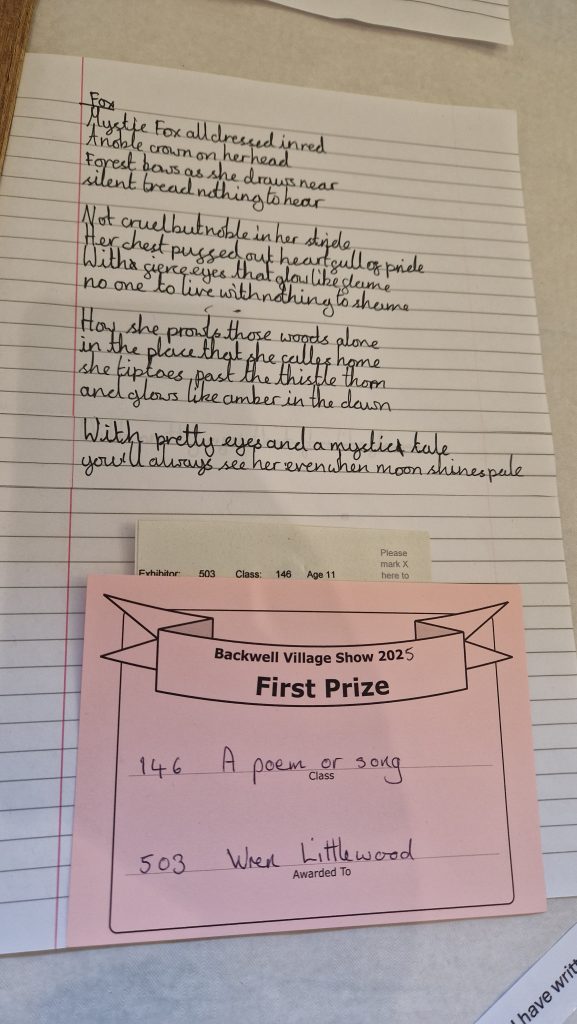 Fox
Mystic Fox all dressed in red
A noble crown on her head
Forest bows as she draws near
silent tread nothing to hear
Not cruel but noble in her stride
Her chest puffed out heart full of pride
With fierce eyes that glow like flame
no one to live with nothing to shame
How she prowls those woods alone
in the place that she calles home
she tiptoes past the thistle thorn
and glows like amber in the dawn
With pretty eyes and a mystick tale
you'll always see her even when moon shines pale
Please
mark X
here to
Exhibitor: 503 Class: 146 Age 11
Backwell Village Show 2025
First Prize
146 A poem or song
Class
503 Wren Littlewood
Awarded To
I have writt